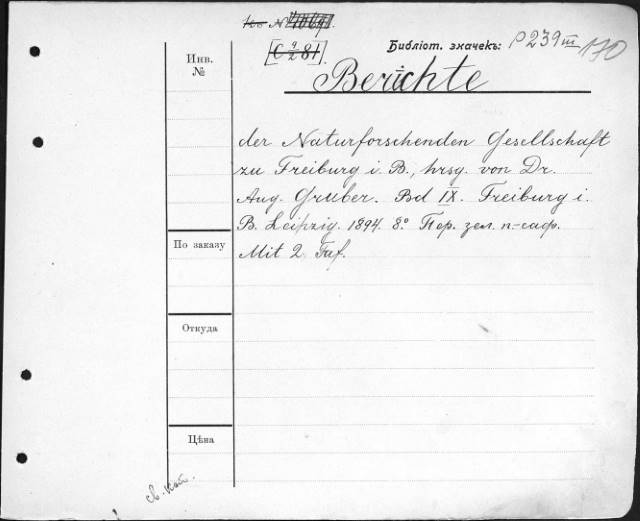 Библіот. значекъ: P 239 III 170
Инв.
№
Berichte
der Naturforschenden Gesellschaft
zu Freiburg i. B., hrsg. von Dr.
Aug. Gruber. Bd IX. Freiburg i.
B. Leipzig. 1894. 8º Пер. зел. п-саф.
Mit 2 Taf.
По заказу
Откуда
Цѣна